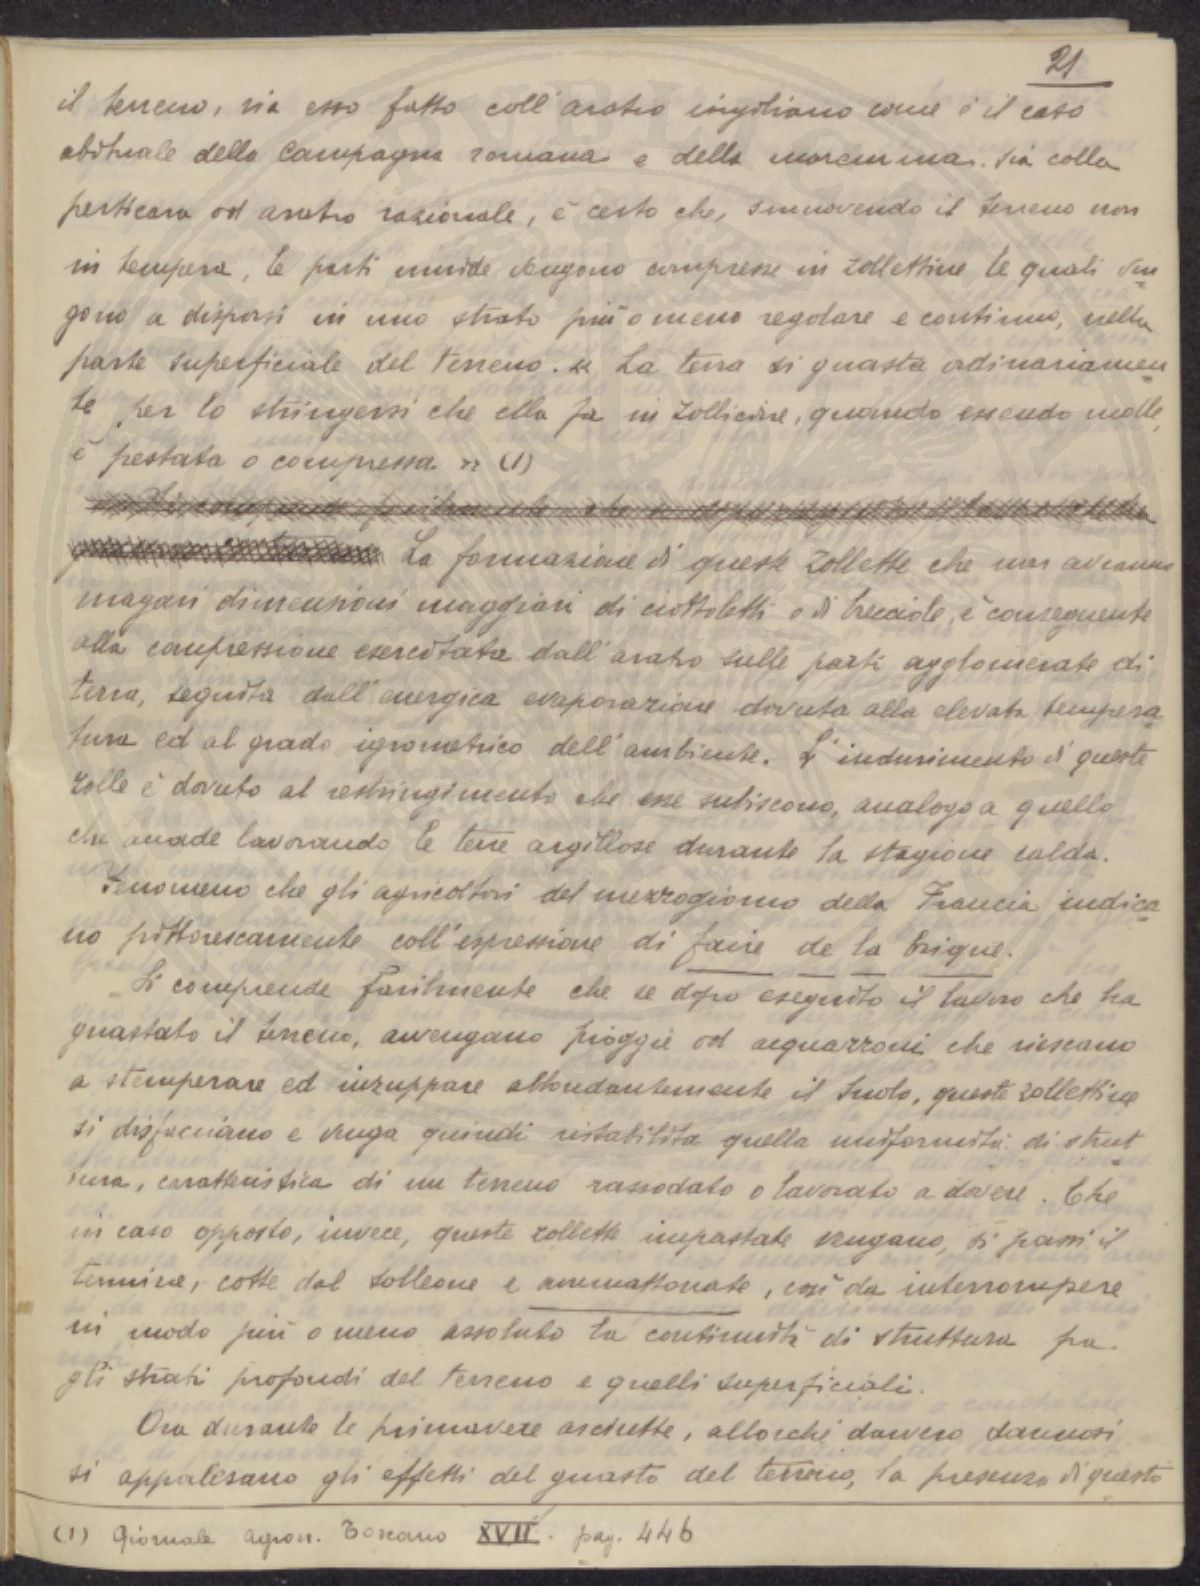 21
il terreno, sia esso fatto coll'aratro virgiliano come è il caso
abituale della Campagna romana e della maremma. Sia colla
perticara od aratro razionale, è certo che, smuovendo il terreno non
in tempera, le parti umide vengono compresse in zollettine le quali ven
gono a disporsi in uno strato più o meno regolare e continuo, nella
parte superficiale del terreno. « La terra si guasta ordinariamen
te per lo stringersi che ella fa in zollicine, quando essendo molle,
è pestata o compressa » (1)
Si comprende facilmente che se dopo
La formazione di queste zollette che non avranno
magari dimensioni maggiori di ciottoletti o di breciole, è conseguente
alla compressione esercitata dall'aratro sulle parti agglomerate di
terra, seguita dall'energica evaporazione dovuta alla elevata tempera
tura ed al grado igrometrico dell'ambiente. L'indurimento di queste
zolle è dovuto al restringimento che esse subiscono, analogo a quello
che accade lavorando le terre argillose durante la stagione calda.
Fenomeno che gli agricoltori del mezzogiorno della Francia indica
no pittorescamente coll'espressione di faire de la brique.
Si comprende facilmente che se dopo eseguito il lavoro che ha
guastato il terreno, avvengano pioggie od acquazzoni che riescano
a stemperare ed inzuppare abbondantemente il suolo, queste zollettine
si disfacciano e venga quindi ristabilita quella uniformità di strut
tura, caratteristica di un terreno rassodato o lavorato a dovere. Che
in caso opposto, invece, queste zollette impastate vengano, si passi il
termine, cotte dal solleone e ammattonate, così da interrompere
in modo più o meno assoluto la continuità di struttura fra
gli strati profondi del terreno e quelli superficiali.
Ora durante le primavere asciutte, allorché davvero dannosi
si appalesano gli effetti del guasto del terreno, la presenza di questo
(1) Giornale agron. Toscano XVII. pag. 446